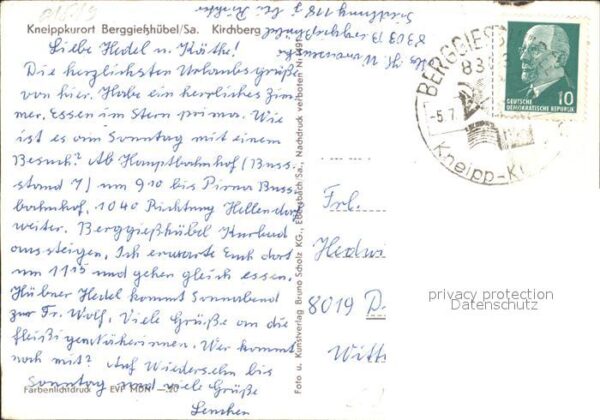 Kneippkurort Berggießhübel/Sa. Kirchberg
8303 Berggießhübel
Siedlung 118 j bei Richter
Liebe Hedel u. Käthe!
Die herzlichsten Urlaubsgrüße
von hier. Habe ein herrliches Zim-
mer, Essen im Stern prima. Wie
ist es am Sonntag mit einem
Besuch? Ab Hauptbahnhof (Buss-
stand 7) um 9 10 bis Pirna Buss-
bahnhof, 10 40 Richtung Hellendorf
weiter. Berggießhübel Kurbad
aussteigen. Ich erwarte Euch dort
um 11 15 und gehen gleich essen.
Hübner Hedel kommt Sonnabend
zur Fr. Wolf. Viele Grüße an die
fleißigen Näherinnen. Wer kommt
noch mit? Auf Wiedersehn bis
Sonntag und viele Grüße
Lenchen
Farbenlichtdruck EVP MDN –.20
Foto u. Kunstverlag Bruno Scholz KG., Ebersbach/Sa., Nachdruck verboten Nr.
BERGGIES
83
-5.7.
Kneipp-K
DEUTSCHE
DEMOKRATISCHE REPUBLIK
10
Frl.
Hedwi
8019 D
Witt
privacy protection
Datenschutz